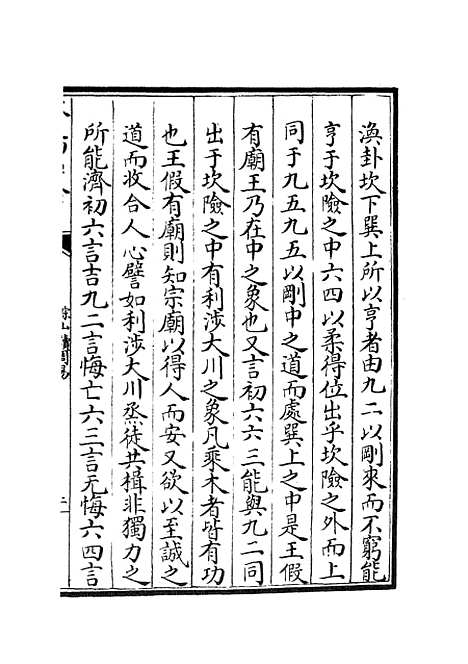 渙卦坎下巽上所以亨者由九二以剛來而不窮能
亨于坎險之中六四以柔得位出乎坎險之外而上
同于九五九五以剛中之道而處巽上之中是王假
有廟王乃在中之象也又言初六六三能與九二同
出于坎險之中有利涉大川之象凡乘木者皆有功
也王假有廟則知宗廟以得人而安又欲以至誠之
道而收合人心譬如利涉大川烝徒共楫非獨力之
所能濟初六言吉九二言悔亡六三言无悔六四言
讀周易